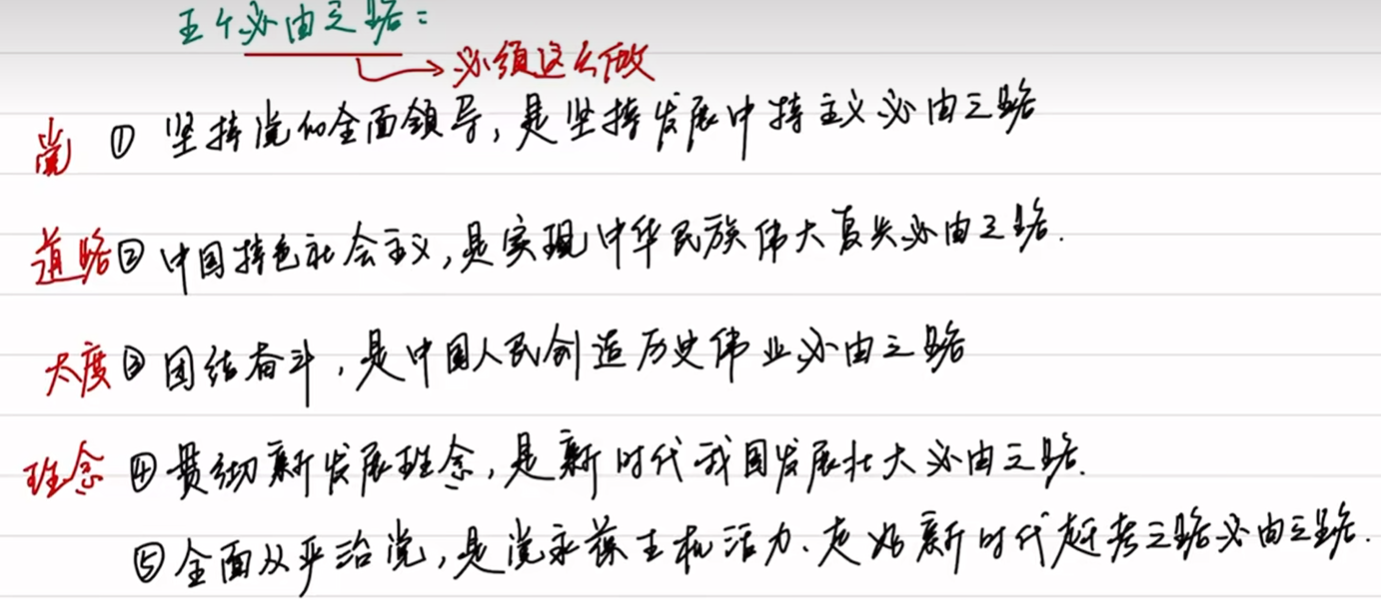 五个必由之路：
必须这么做
党 ① 坚持党的全面领导，是坚持发展中特主义必由之路
道路 ② 中国特色社会主义，是实现中华民族伟大复兴必由之路.
太度 ③ 团结奋斗，是中国人民创造历史伟业必由之路
理念 ④ 贯彻新发展理念，是新时代我国发展壮大必由之路.
⑤ 全面从严治党，是党永葆生机活力、走好新时代赶考之路必由之路.